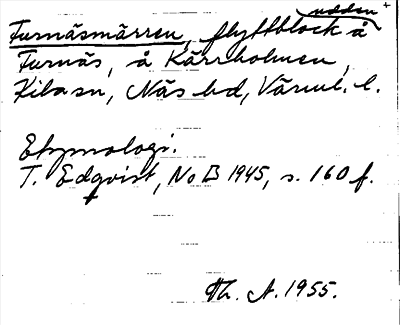 Furnäsmärren, flyttblock å udden
Furnäs, å Kärrholmen,
Kila sn, Näs hd, Värml. l.
Etymologi.
T. Edqvist, NoB 1945, s. 160 f.
Th. A. 1955.